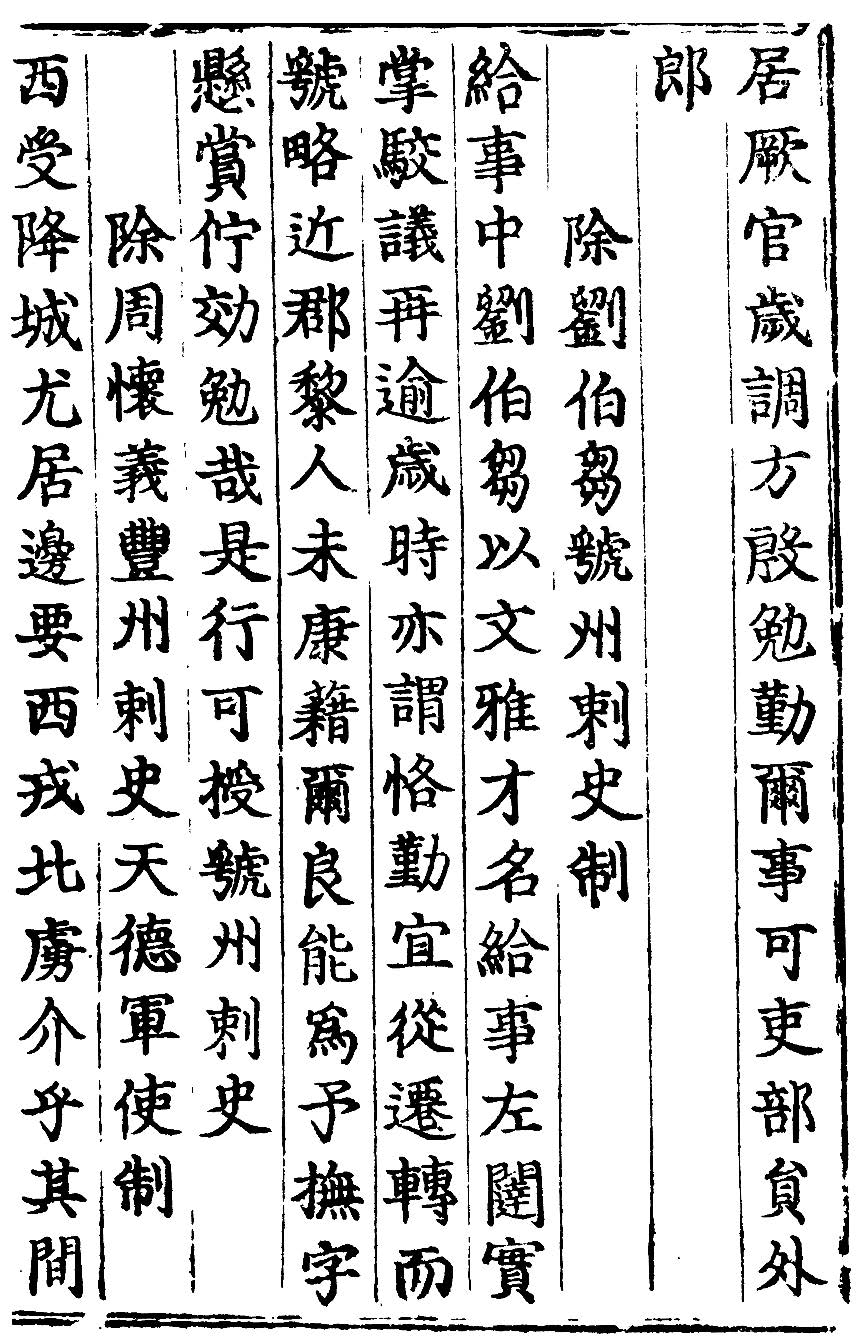 居厥官歲調方殷勉勤爾事可吏部貟外
郎
除劉伯芻虢州刺史制
給事中劉伯芻以文雅才名給事左闥實
掌駮議再逾歲時亦謂恪勤宜從遷轉而
虢略近郡黎人未康藉爾良能爲予撫字
懸賞佇効勉哉是行可授虢州刺史
除周懷義豐州刺史天德軍使制
西受降城尤居邊要西戎北虜介乎其間